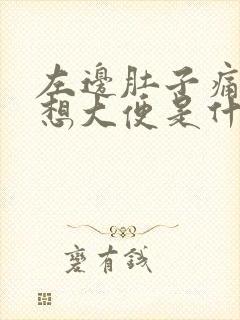 左邊肚子痛
想大便是什
蹇有錢